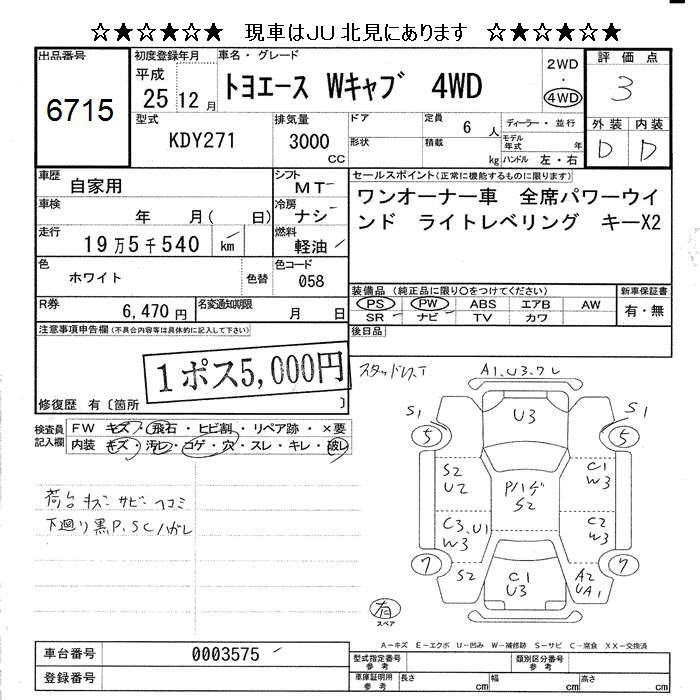 ☆★☆★☆★ 現車はJU北見にあります ☆★☆★☆★
出品番号
6715
初度登録年月
平成
25 12 月
車名・グレード
トヨエース Wキャブ 4WD
2WD
・
4WD
評価点
3
外装 内装
D D
型式
KDY271
排気量
3000
CC
ドア
形状
定員
6 人
積載
kg
ディーラー・並行
モデル年式 年
ハンドル 左・右
車歴
自家用
シフト
MT
車検
年 月( 日)
冷房
ナシ
走行
19万5千540 km
燃料
軽油
色
ホワイト
色替
色コード
058
R券
6,470 円
名変通知期限
月 日
セールスポイント(正常に機能するものに限ります)
ワンオーナー車 全席パワーウイ
ンド ライトレベリング キーX2
装備品(純正品に限り○をつけてください)
PS PW ABS エアB AW
SR ナビ TV カワ
新車保証書
有・無
後日品
注意事項申告欄(不具合内容等は具体的に記入して下さい)
1ポス5,000円
修復歴 有〔箇所 〕
検査員
記入欄
FW キズ・飛石・ヒビ割・リペア跡・×要
内装 キズ・汚レ・コゲ・穴・スレ・キレ・破レ
荷台 キズ サビ ヘコミ
下廻り黒P、SCハガレ
スタッドレスT
A1.U3.ワレ
U3
S1
S1
5
5
S2
U2
Pハゲ
S2
C1
W3
C3、U1
W3
C2
W3
7
7
S2
C1
U3
A2
UA1
有
スペア
A-キズ E-エクボ U-凹み W-補修跡 S-サビ C-腐食 XX-交換済
車台番号
0003575
登録番号
型式指定番号
参考
類別区分番号
参考
車庫証明用
参考
長さ cm
幅 cm
高さ cm